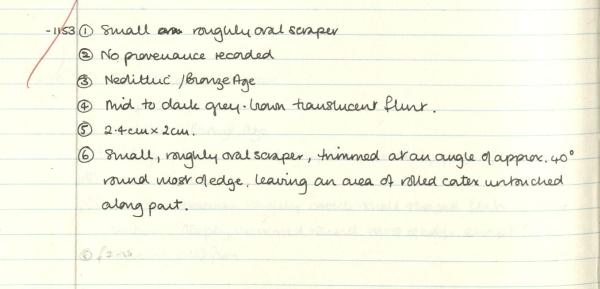 -1153 ① Small roughly oval scraper
② No provenance recorded
③ Neolithic / Bronze Age
④ Mid to dark grey-brown translucent flint.
⑤ 2.4cm x 2cm.
⑥ Small, roughly oval scraper, trimmed at an angle of approx. 40°
round most of edge, leaving an area of rolled cortex untouched
along part.